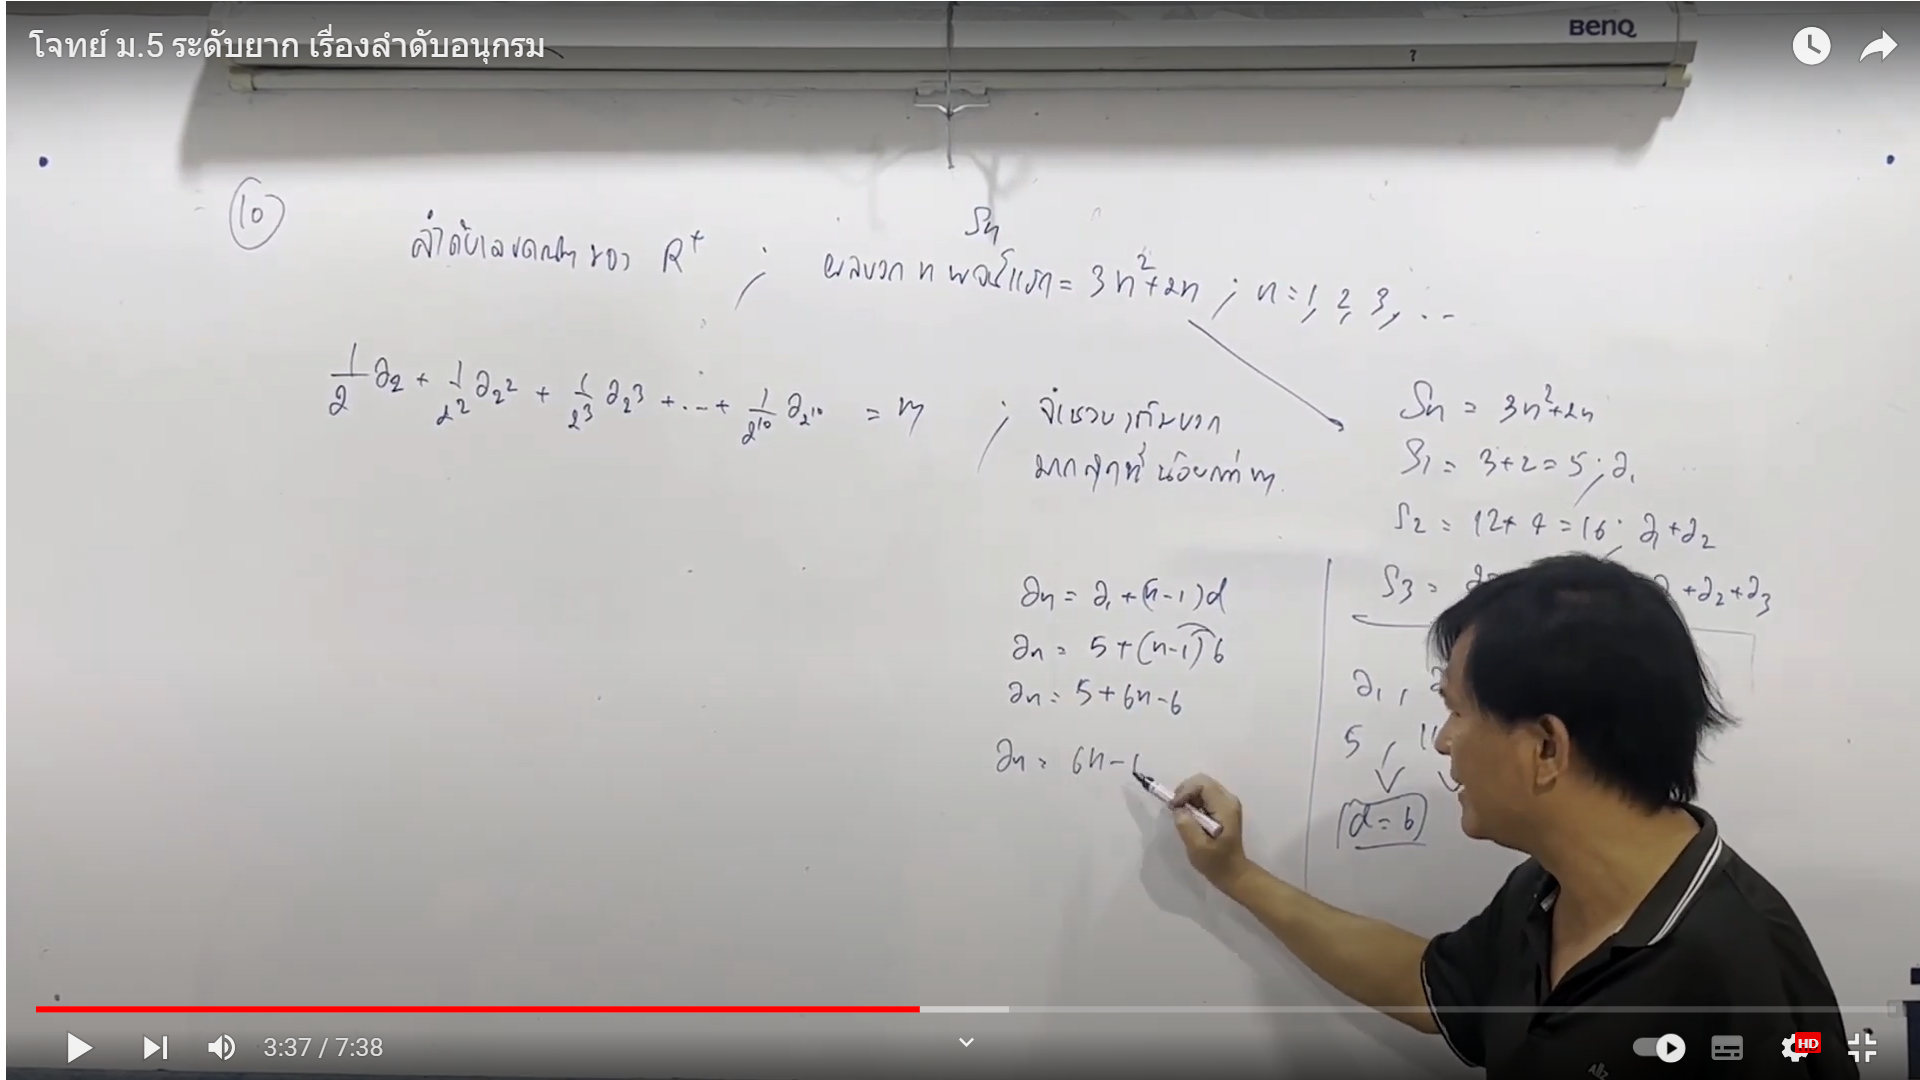 โจทย์ ม.5 ระดับยาก เรื่องลำดับอนุกรม
BenQ
10
Sn
ลำดับเลขคณิตของ R⁺ ; ผลบวก n พจน์แรก = 3n²+2n ; n = 1, 2, 3, ...
1/2 a₂ + 1/2² a₂² + 1/2³ a₂³ + ... + 1/2¹⁰ a₂¹⁰ = m ; จำนวนเต็มบวก
มากสุดที่น้อยกว่า m
Sn = 3n²+2n
S₁ = 3+2 = 5 ; a₁
S₂ = 12+4 = 16 ; a₁+a₂
S₃ = +a₂+a₃
an = a₁+(n-1)d
an = 5+(n-1)6
an = 5+6n-6
an = 6n-1
a₁ ,
5 , 11
d = 6
3:37 / 7:38
HD